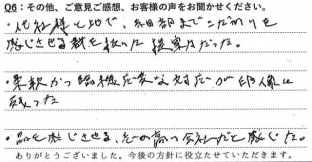 Q6：その他、ご意見ご感想、お客様の声をお聞かせください。
・他社様と比べ、細部までこだわりを
感じさせる
提案だった。
・柔軟かつ臨機応変な対応が印象に
残った
・品を感じさせる、質の高い会社だと感じた。
ありがとうございました。今後の方針に役立たせていただきます。